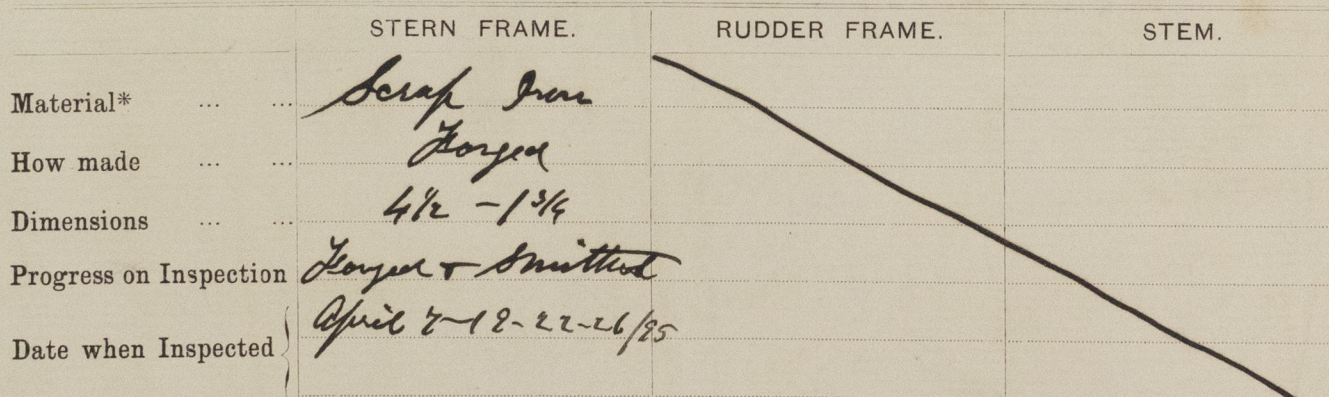 STERN FRAME. RUDDER FRAME. STEM.
Material* ... ... Scrap Iron
How made ... ... Forged
Dimensions ... ... 4½ - 1¾
Progress on Inspection Forged + Smithed
Date when Inspected April 7-12-22-26/95